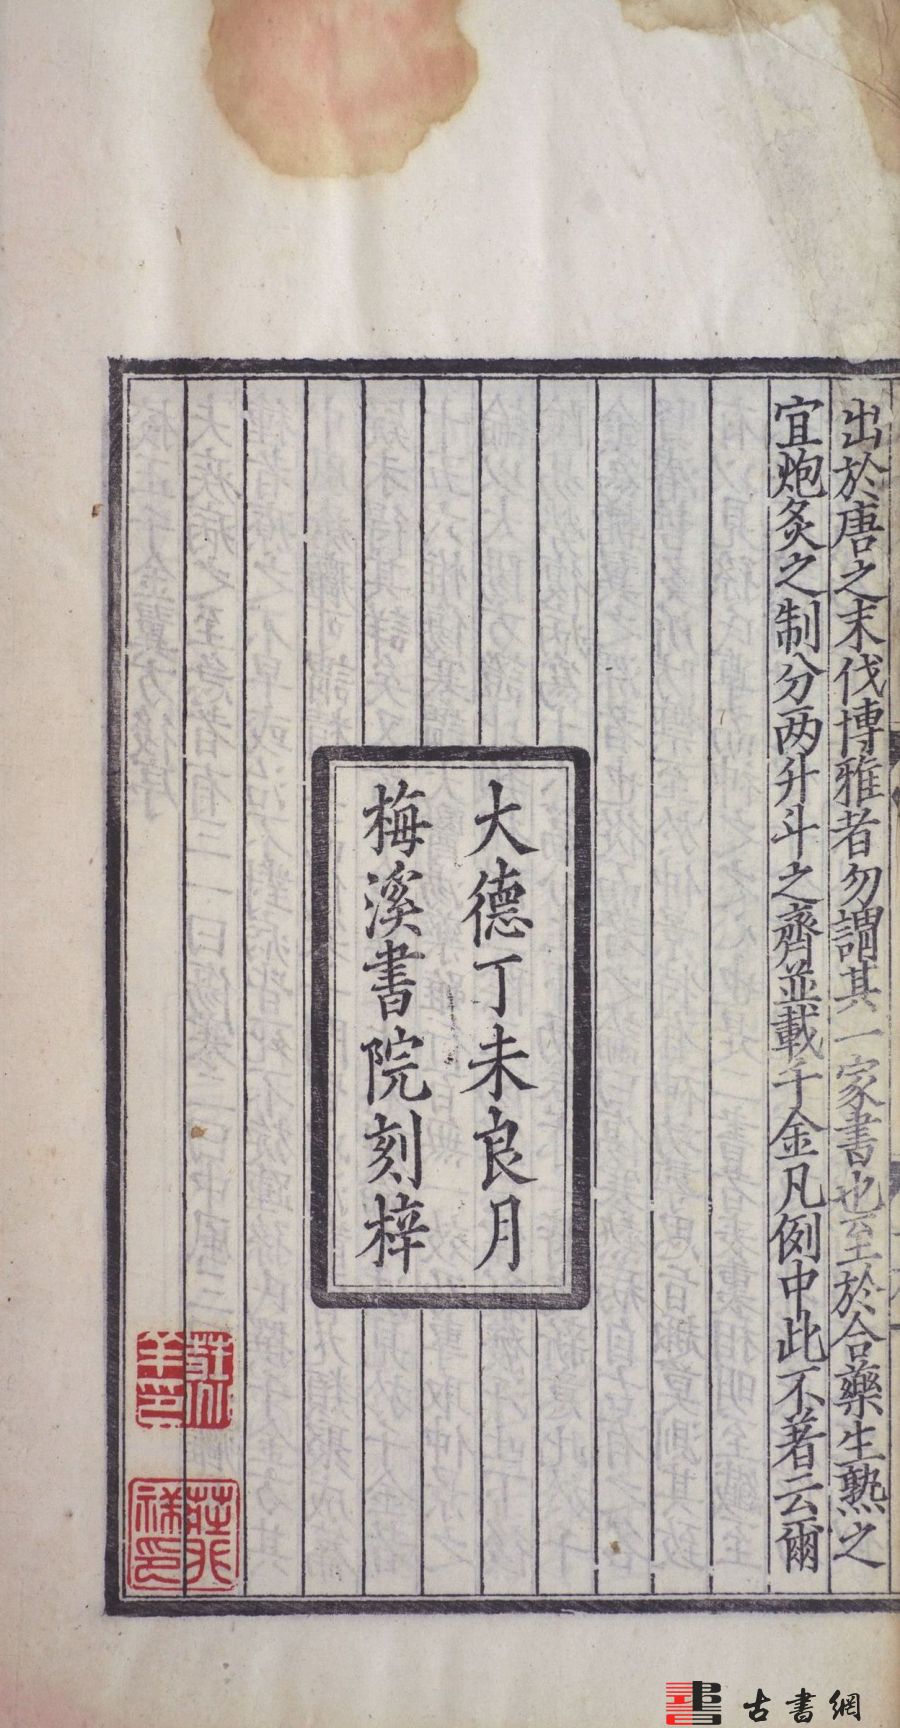 出於唐之末伐博雅者勿謂其一家書也至於合藥生熟之
宜炮炙之制分两升斗之齊並載千金凡例中此不著云爾
大德丁未良月
梅溪書院刻梓
古書網